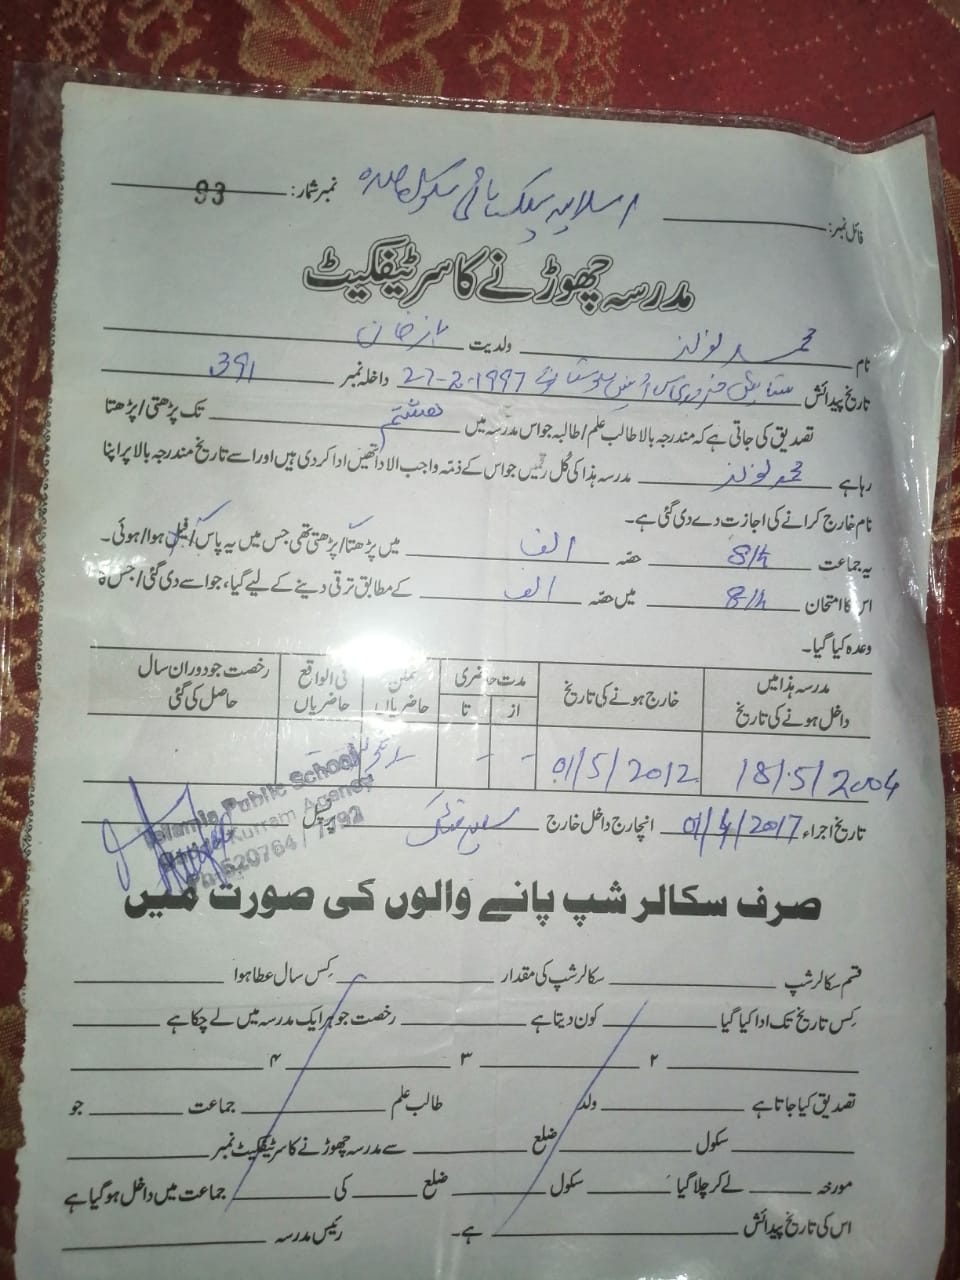 فائل نمبر: اسلامیہ پبلک ہائی سکول صدہ نمبر شمار: 93
مدرسہ چھوڑنے کا سرٹیفکیٹ
نام محمد نواز ولدیت
تاریخ پیدائش ستائیس فروری 27-2-1997 داخلہ نمبر 391
تصدیق کی جاتی ہے کہ مندرجہ بالا طالب علم / طالبہ جو اس مدرسہ میں ہشتم تک پڑھتی / پڑھتا
رہا ہے محمد نواز مدرسہ ہذا کی کُل رقمیں جو اس کے ذمّہ واجب الادا تھیں ادا کر دی ہیں اور اسے تاریخ مندرجہ بالا پر اپنا
نام خارج کرانے کی اجازت دے دی گئی ہے۔
یہ جماعت 8th حصّہ الف میں پڑھتا / پڑھتی تھی جس میں یہ پاس / فیل ہوا / ہوئی۔
اس کا امتحان 8th میں حصّہ الف کے مطابق ترقی دینے کے لیے گیا، جو اسے دی گئی / جس کا
وعدہ کیا گیا۔
مدرسہ ہذا میں داخل ہونے کی تاریخ خارج ہونے کی تاریخ مدت حاضری از تا ممکن حاضریاں فی الواقع حاضریاں رخصت جو دوران سال حاصل کی گئی
18/5/2004 01/5/2012 - -
تاریخ اجراء 01/4/2017 انچارج داخل خارج پرنسپل
Islamia Public School
Kurram Agency
Ph: 520764 / 7792
صرف سکالر شپ پانے والوں کی صورت میں
قسم سکالرشپ سکالرشپ کی مقدار کِس سال عطا ہوا
کِس تاریخ تک ادا کیا گیا کون دیتا ہے رخصت جو ہر ایک مدرسہ میں لے چکا ہے
۲ ۳ ۴
تصدیق کیا جاتا ہے ولد طالب علم جماعت جو
سکول ضلع سے مدرسہ چھوڑنے کا سرٹیفکیٹ نمبر
مورخہ لے کر چلا گیا سکول ضلع کی جماعت میں داخل ہو گیا ہے
اس کی تاریخ پیدائش ہے۔ رئیس مدرسہ